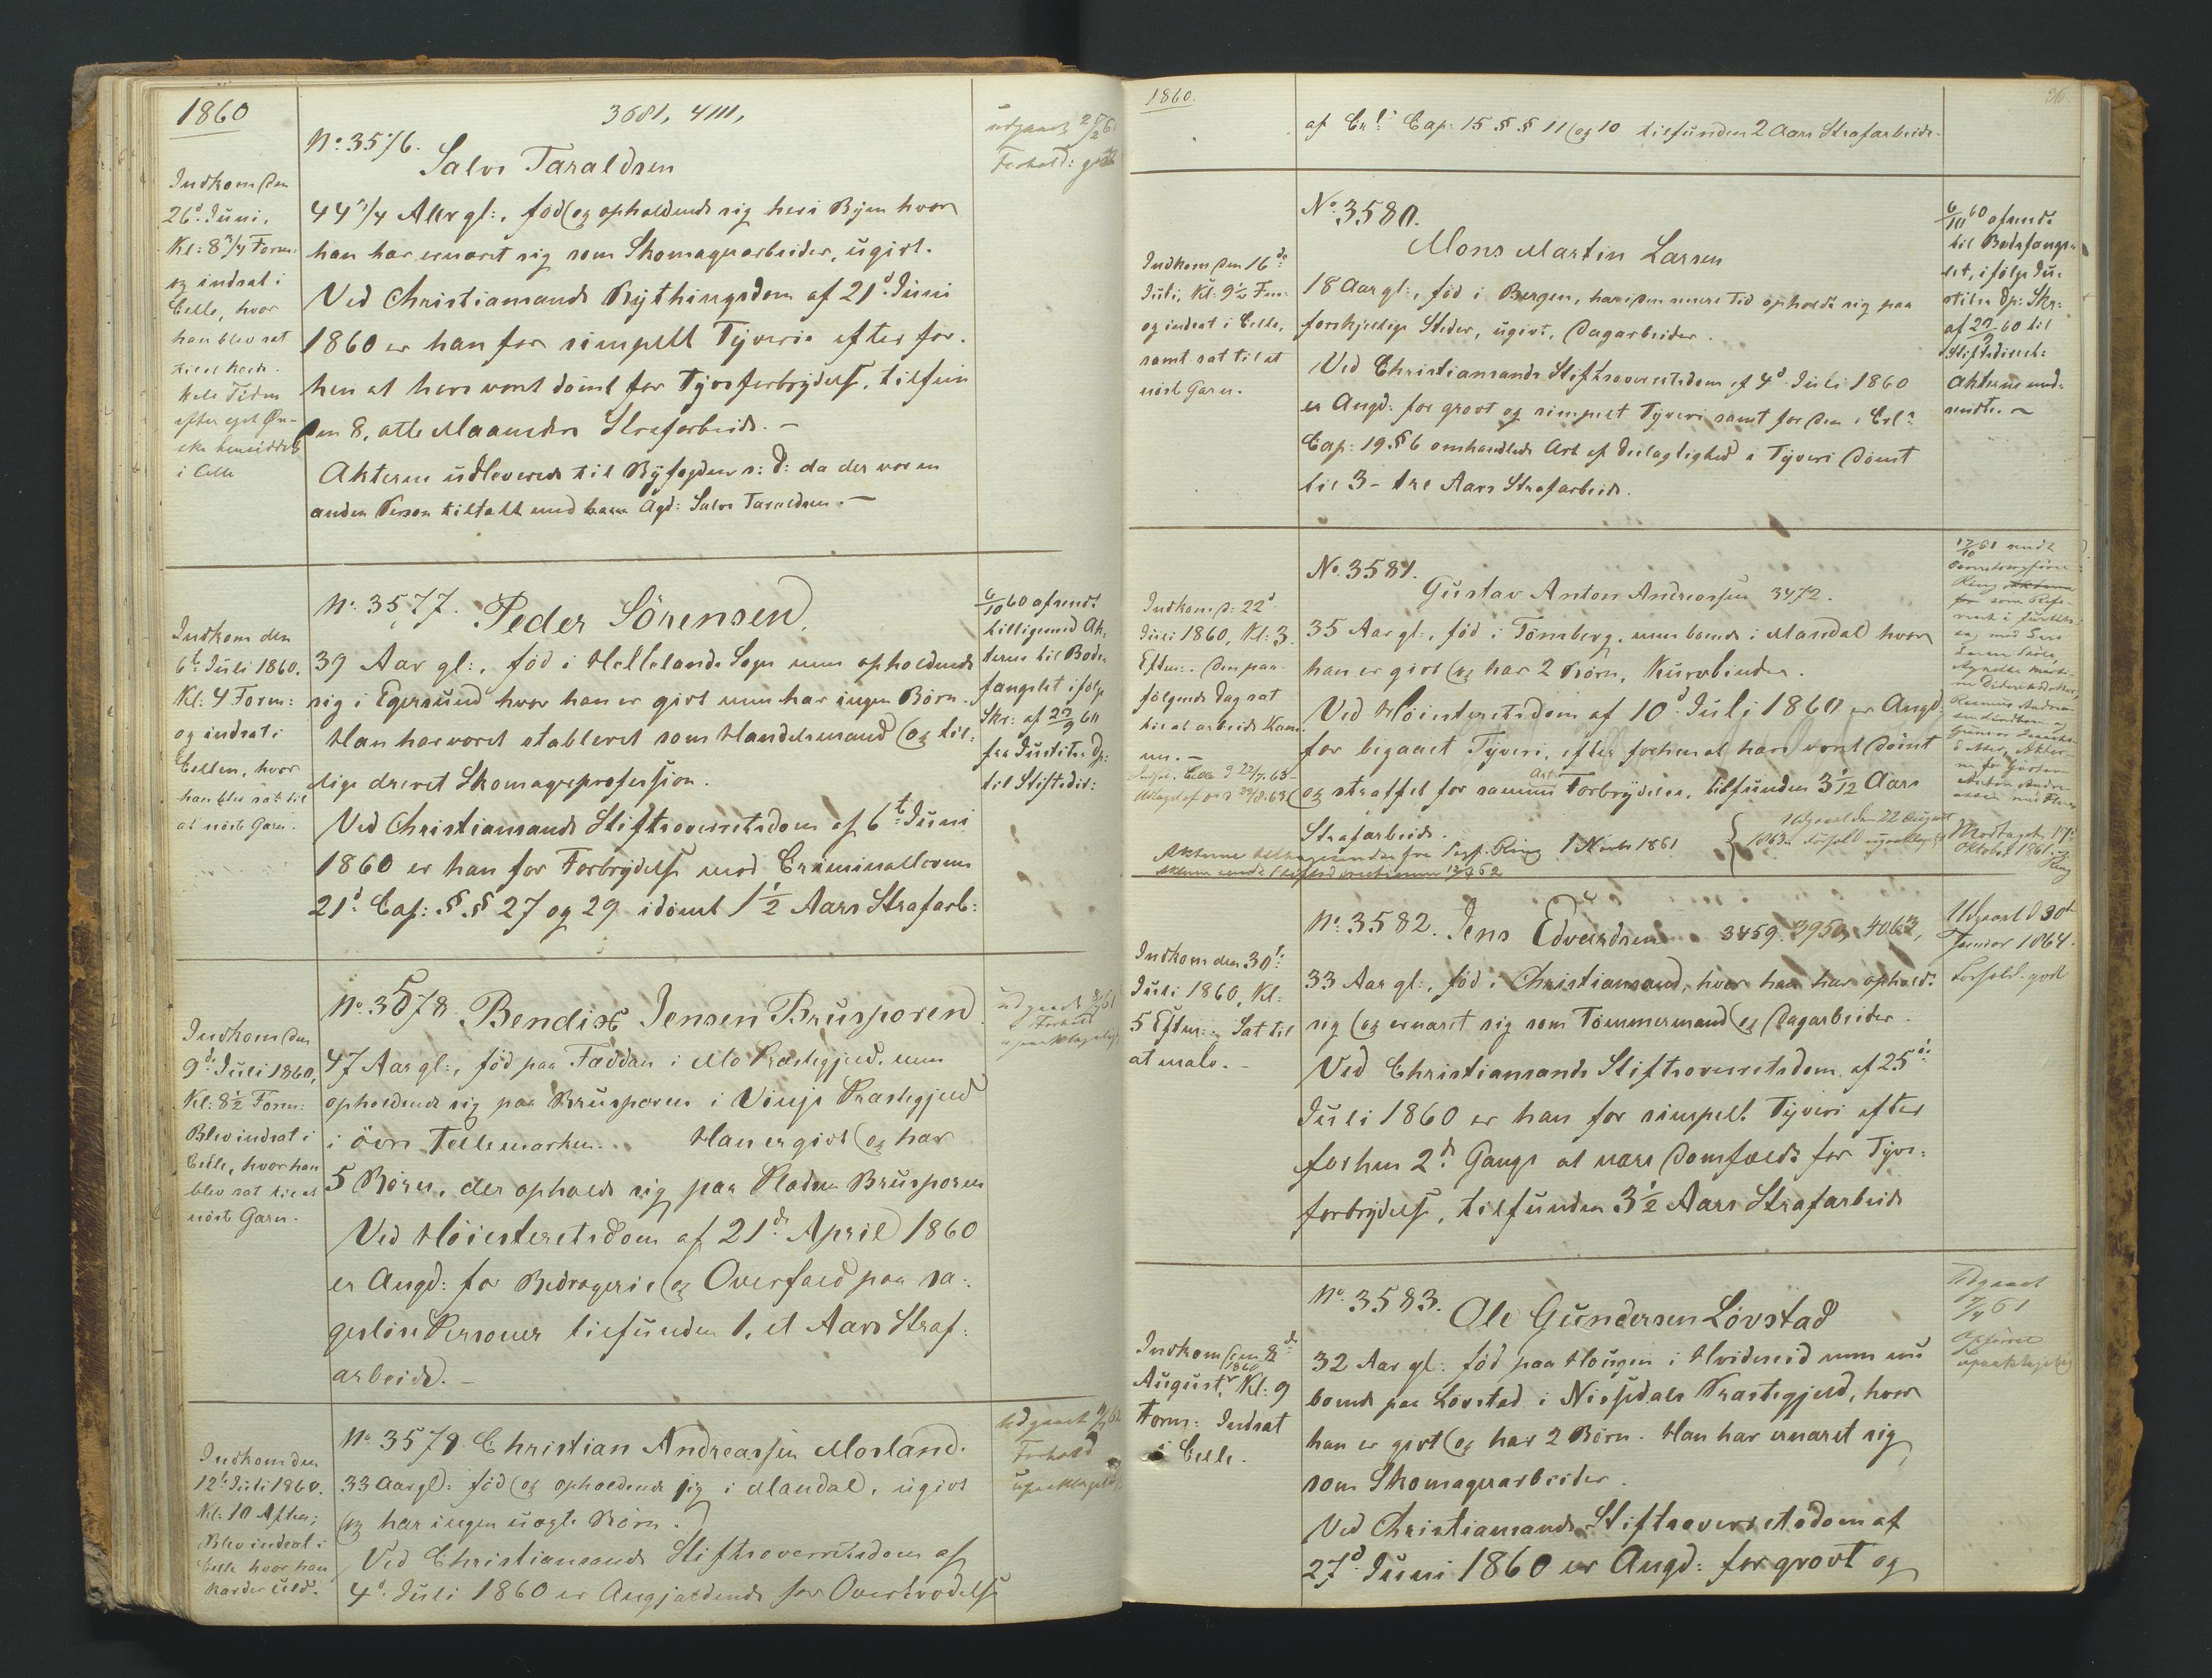 1860
3681, 4111,
No: 3576.
Salve Taraldsen
Indkom den
26d. Juni,
Kl: 8 3/4 Form:
og indsat i
Celle, hvor
han blev sat
hele Tiden
efter eget Øn-
i Celle
44 3/4 Aar gl:, född og opholdende sig her i Byen hvor
han har ernæret sig som Skomagerarbeider, ugivt.
Ved Christiansands Bythingsdom af 21d. Juni
1860 er han for simpelt Tyverie efter for-
hen at have været dömt for Tyvsforbrydelse, tilfun
den 8, otte Maaneders Strafarbeide. -
Akterne udleveredes til Byfogden s: D: da der var en
anden Person tiltalt med ham Agd: Salve Taraldsen. -
udgaaet
Forhold: godt
No. 3577. Peder Sörensen.
Indkom den
6te Juli 1860.
Kl: 4 Form:
og indsat i
Cellen, hvor
han blev sat til
at nöste Garn.
39 Aar gl:, född i Hellelands Sogn men opholdende
sig i Egersund hvor han er givt men har ingen Börn.
Han har været etableret som Handelsmand og til-
lige drevet Skomagerprofession.
Ved Christiansands Stiftsoverretsdom af 6te Juni
1860 er han for Forbrydelse mod Criminallovens
21d. Cap: §.§ 27 og 29 idömt 1 1/2 Aars Strafarb:
6/10 60 afsendt
tilligemed Ak-
terne til Bods
fængslet ifølge
Skr: af 29/9 60
fra Justits Dp:
til Stiftsdir:
No. 3578. Bendix Jensen Brusporen
Indkom den
9d. Juli 1860,
Kl: 8 1/2 Form:
Blev indsat i
Celle, hvor han
blev sat til at
nöste Garn.
47 Aar gl:, född paa Fæddan i Mo Præstegjeld, men
opholdende sig paa Brusporen i Vinje Præstegjeld
i övre Tellemarken. Han er givt og har
5 Börn, der opholde sig paa Pladsen Brusporen
Ved Höiesteretsdom af 21de April 1860
er Angd: for Bedragerie og Overfald paa sa-
geslöse Personer tilfunden 1, et Aars Straf-
arbeide. -
udgaaet
Forhold
upaaklageligt
No. 3579. Christian Andreassen Mosland.
Indkom den
12te Juli 1860.
Kl: 10 Aften;
Blev indsat i
Celle hvor han
karder Uld.
33 Aar gl: född og opholdende sig i Mandal, ugivt
og har ingen uægte Börn.
Ved Christiansands Stiftsoverretsdom af
4d. Juli 1860 er Angjældende for Overtrædelse
Udgaaet
Forhold
upaaklageligt
1860.
af Crl: Cap: 15 §.§ 11 og 10 tilfunden 2 Aars Strafarbeide.
No. 3580.
Mons Martin Larsen
Indkom den 16de
Juli, Kl: 9 1/2 Fm:
og indsat i Celle,
samt sat til at
nöste Garn.
18 Aar gl:, född i Bergen, har i den senere Tid opholdt sig paa
forskjellige Steder, ugivt, Dagarbeider.
Ved Christiansands Stiftsoverretsdom af 4d. Juli 1860
er Angd: for grovt og simpelt Tyveri samt for den i Crl:
Cap: 19. § 6 omhandlede Art af Deelagtighed i Tyveri dömt
til 3 - tre Aars Strafarbeide.
6/10 60 afsendt
til Bodsfængs-
let, ifölge Ju-
stits Dp: Skr:
af 29/9 60 til
Stiftsdirek:
Akterne med-
sendte. -
No. 3581.
Gustav Anton Andreassen 3472.
Indkom d: 22d.
Juli 1860, Kl: 3
Eftm:. Den paa-
fölgende Dag sat
til at arbeide Kam-
me. -
35 Aar gl:, född i Tönsberg, men boende i Mandal hvor
han er givt og har 2 Börn, Kurvebinder.
Ved Höiesteretsdom af 10d. Juli 1860 er Angd:
for begaaet Tyveri, efter forhen at have været dömt
og straffet for samme Art Forbrydelse, tilfunden 3 1/12 Aars
Strafarbeide.
Udgaaet den 22 August
1863. Forhold upaaklageligt
Akterne fra Ring 1 Novbr 1861
17/10 61 sendt
Ring
som
Modtaget 17.
Oktober 1861.
Ring
No. 3582. Jens Edvardsen 3459. 3950, 4063,
Indkom den 30te
Juli 1860, Kl:
5 Eftm: Sat til
at male. -
33 Aar gl:, född i Christiansand, hvor han har opholdt
sig og ernæret sig som Tömmermand og Dagarbeider.
Ved Christiansands Stiftsoverretsdom af 25de
Juli 1860 er han for simpelt Tyveri efter
forhen 2de Gange at være domfældt for Tyvs-
forbrydelse, tilfunden 3 1/2 Aars Strafarbeide
Udgaaet d 30te
Januar 1864.
Forhold. godt
No. 3583. Ole Gundersen Lövstad
Indkom den 8de
August 1860, Kl: 9
Form: Indsat
i Celle.
32 Aar gl: född paa Haugen i Hvideseid men nu
boende paa Lövstad i Nissedals Præstegjeld, hvor
han er givt og har 2 Börn. Han har ernæret sig
som Skomagerarbeider.
Ved Christiansands Stiftsoverretsdom af
27d. Juni 1860 er Angd: for grovt og
Udgaaet
7/4 61
Opførsel
upaaklagelig